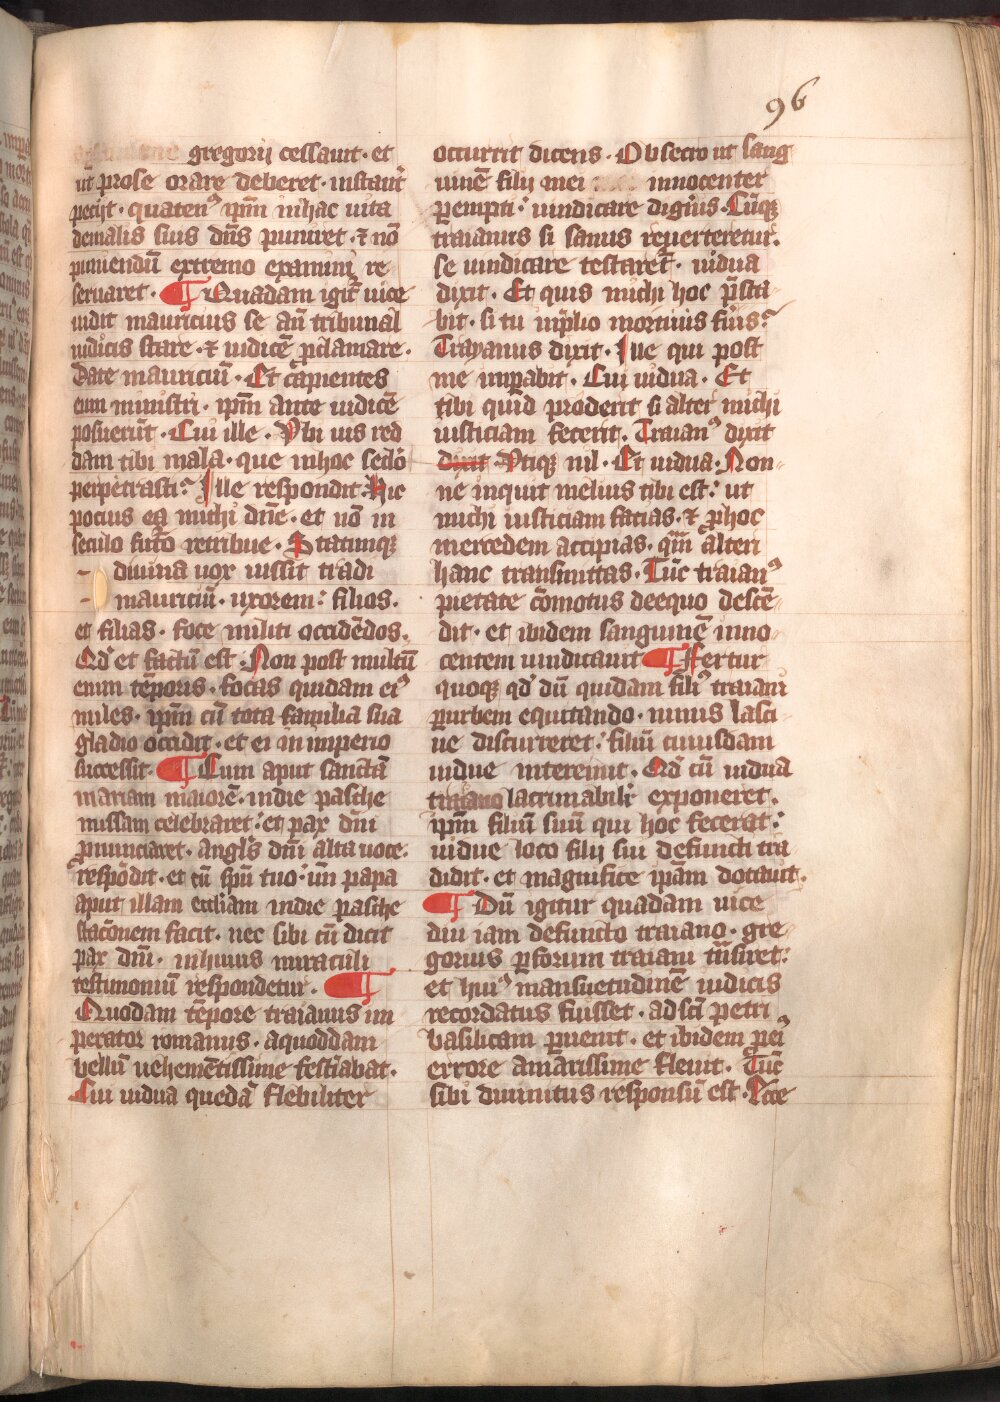 96
gregorij cessauit · et
ut̄ prose orare deberet · instant̄
pecijt · quatenꝰ ip̄m inhac uita
demalis suis dn̄s puniret · ⁊ nō
puniendū extremo examini re
seruaret · ¶ Quadam igit᷑ uice
uidit mauricius se an̄ tribunal
iudicis stare · ⁊ iudicē ꝓclamare ·
Date mauriciū · Et capientes
eum ministri · ip̄m ante iudicē
posuerūt · Cui ille · Vbi uis red
dam tibi mala · que inhoc sec̄lo
perpetrasti? Ille respondit · Hic
pocius ea michi dn̄e · et nō in
seculo fut̄o retribue · Statimqꝫ
diuina uox iussit tradi
mauriciū · uxorem : filios ·
et filias · foce militi occidēdos ·
Qd̄ et factū est · Non post multū
enim tēporis · focas quidam eiꝰ
miles · ip̄m cū tota familia sua
gladio occidit · et ei in imperio
successit · ¶ Cum aput sanctā
mariam maiorē · indie pasche
missam celebraret : et pax dn̄i
ꝓnunciaret · angl̄s dn̄i alta uoce ·
respōdit · et cū sp̄u tuo : un̄ papa
aput illam eccl̄iam indie pasche
stac̄onem facit · nec sibi cū dicit
pax dn̄i · inhuius miraculi
testimoniū respondetur · ¶
Quodam tēpore traianus im
perator romanus · aquoddam
bellū uehemētissime festīabat ·
Cui uidua quedā flebiliter
occurrit dicens · Obsecro ut sang
uinē filij mei innocenter
ꝑempti : uindicare digīs · Cūqꝫ
traianus si sanus reuerteretur ·
se uindicare testaret᷑ · uidua
dixit · Et quis michi hoc p̄sta
bit · si tu in p̄lio mortuus fuīs?
Trayanus dixit · Ille qui post
me imꝑabit · Cui uidua · Et
tibi quid proderit si alter michi
iusticiam fecerit · Traianꝰ dixit
dixit · Vtiqꝫ nil · Et uidua · Non
ne inquit melius tibi est : ut
michi iusticiam facias · ⁊ ꝓhoc
mercedem accipias · q̄m alteri
hanc transmittas · Tūc traianꝰ
pietate c̄omotus deequo descē
dit · et ibidem sanguinē inno
centem uindicauit ¶ Ffertur
quoqꝫ qd̄ dū quidam filiꝰ traiani
ꝑurbem equitando · nimis lasci
ue discurreret : filiū cuiusdam
uidue interemit · Qd̄ cū uidua
traiano lacrimabilit̄ exponeret ·
ip̄m filiū suū qui hoc fecerat :
uidue loco filij sui defuncti tra
didit · et magnifice ip̄am dotauit ·
¶ Dū igitur quadam uice
diu iam defuncto traiano · gre
gorius ꝑforum traiani t̄nsiret :
et huiꝰ mansuetudinē iudicis
recordatus fuisset · ad sc̄i petri
basilicam ꝑuenit · et ibidem ꝓeiꝰ
errore amarissime fleuit · Tūc
sibi diuinitus responsū est · Ecce